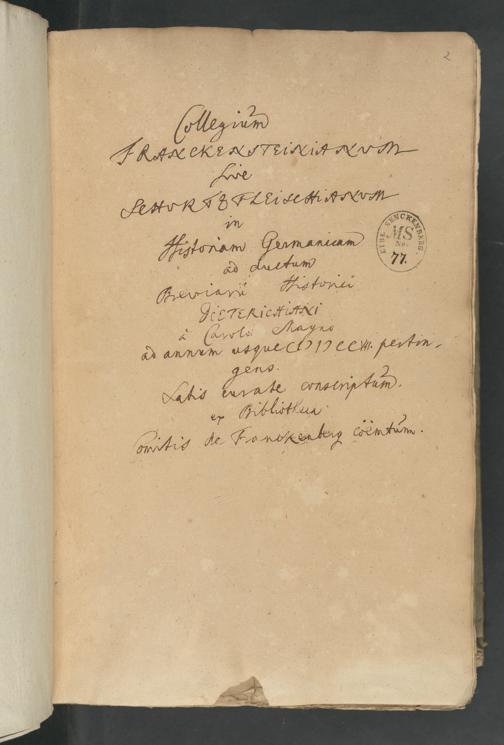 2
Collegium
FRANCKENSTEINIANUM
sive
SCHURTZFLEISCHIANUM
in
Historiam Germanicam
ad ductum
Breviarii Historici
DIETERICHIANI
à Carolo Magno
ad annum usque CIƆIƆCCIII. pertin-
gens.
Satis curate conscriptum.
ex Bibliotheca
Comitis de Franckenberg coëmtum.
BIBL. SENCKENBERG.
MS
No.
77.